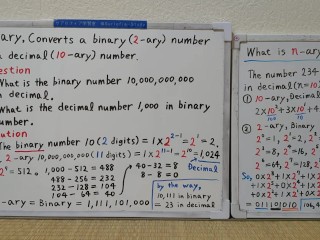 ary. Converts a binary (2-ary) number
a decimal (10-ary) number.
estion
What is the binary number 10,000,000,000
n decimal.
What is the decimal number 1,000 in binary
umber.
ution
The binary number 10 (2 digits) = 1×2²⁻¹=2¹=2.
2-ary 10,000,000,000 (11 digits) = 1×2¹¹⁻¹=2¹⁰=1,024
Decimal
2⁹=512. 1,000-512=488
488-256=232
232-128=104
104-64=40
40-32=8
8-8=0
-ary = Binary = 1,111,101,000
by the way,
10,111 in binary
= 23 in decimal
What is n-ary
The number 234
in decimal (n=10
① 10-ary, Decimal
2×10²+3×10¹+4
100
② 2-ary, Binary
2⁰=1, 2¹=2, 2²
2³=8, 2⁴
2⁶=64, 2⁷=128, 2⁸
So,